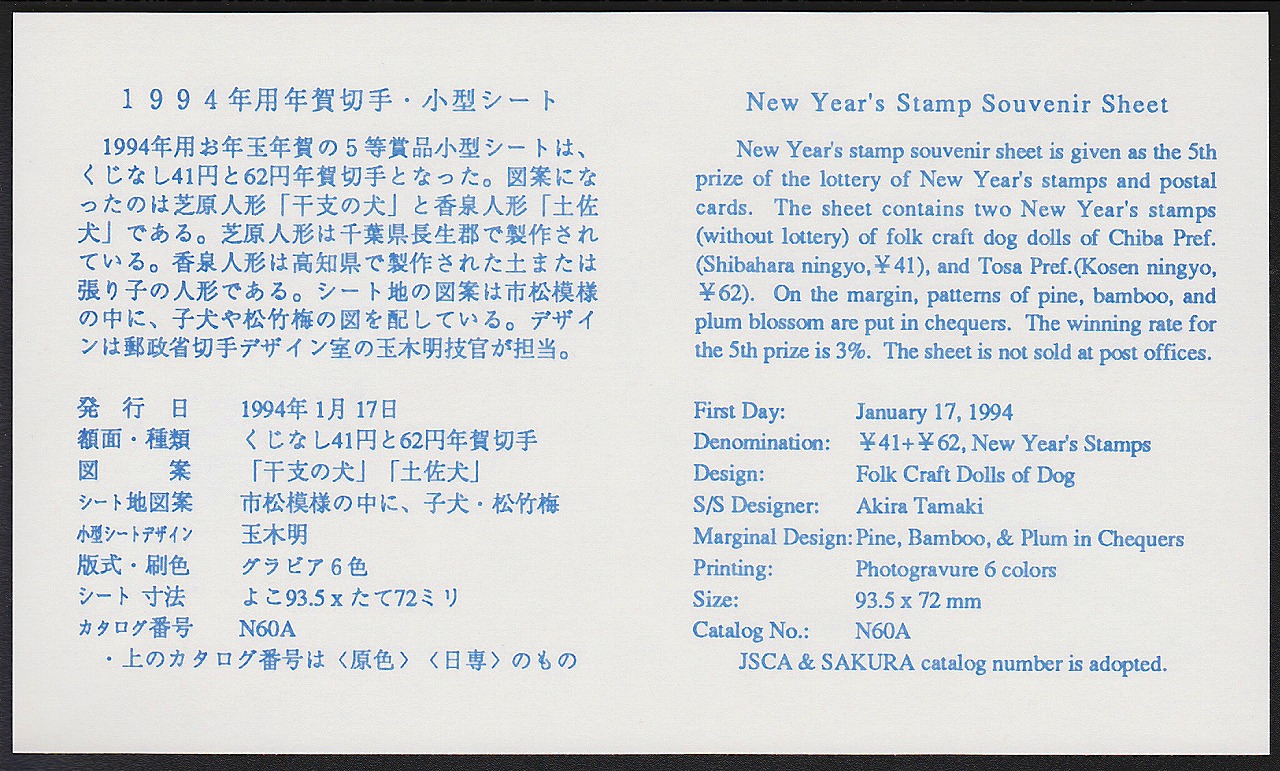 １９９４年用年賀切手・小型シート
1994年用お年玉年賀の５等賞品小型シートは、
くじなし41円と62円年賀切手となった。図案にな
ったのは芝原人形「干支の犬」と香泉人形「土佐
犬」である。芝原人形は千葉県長生郡で製作され
ている。香泉人形は高知県で製作された土または
張り子の人形である。シート地の図案は市松模様
の中に、子犬や松竹梅の図を配している。デザイ
ンは郵政省切手デザイン室の玉木明技官が担当。
発　行　日　1994年 1月 17日
額面・種類　くじなし41円と62円年賀切手
図　　　案　「干支の犬」「土佐犬」
シート地図案　市松模様の中に、子犬・松竹梅
小型シートデザイン　玉木明
版式・刷色　グラビア６色
シート 寸法　よこ93.5 x たて72ミリ
カタログ番号　N60A
・上のカタログ番号は〈原色〉〈日専〉のもの
New Year's Stamp Souvenir Sheet
New Year's stamp souvenir sheet is given as the 5th
prize of the lottery of New Year's stamps and postal
cards. The sheet contains two New Year's stamps
(without lottery) of folk craft dog dolls of Chiba Pref.
(Shibahara ningyo,￥41), and Tosa Pref.(Kosen ningyo,
￥62). On the margin, patterns of pine, bamboo, and
plum blossom are put in chequers. The winning rate for
the 5th prize is 3%. The sheet is not sold at post offices.
First Day: January 17, 1994
Denomination: ￥41+￥62, New Year's Stamps
Design: Folk Craft Dolls of Dog
S/S Designer: Akira Tamaki
Marginal Design: Pine, Bamboo, & Plum in Chequers
Printing: Photogravure 6 colors
Size: 93.5 x 72 mm
Catalog No.: N60A
JSCA & SAKURA catalog number is adopted.